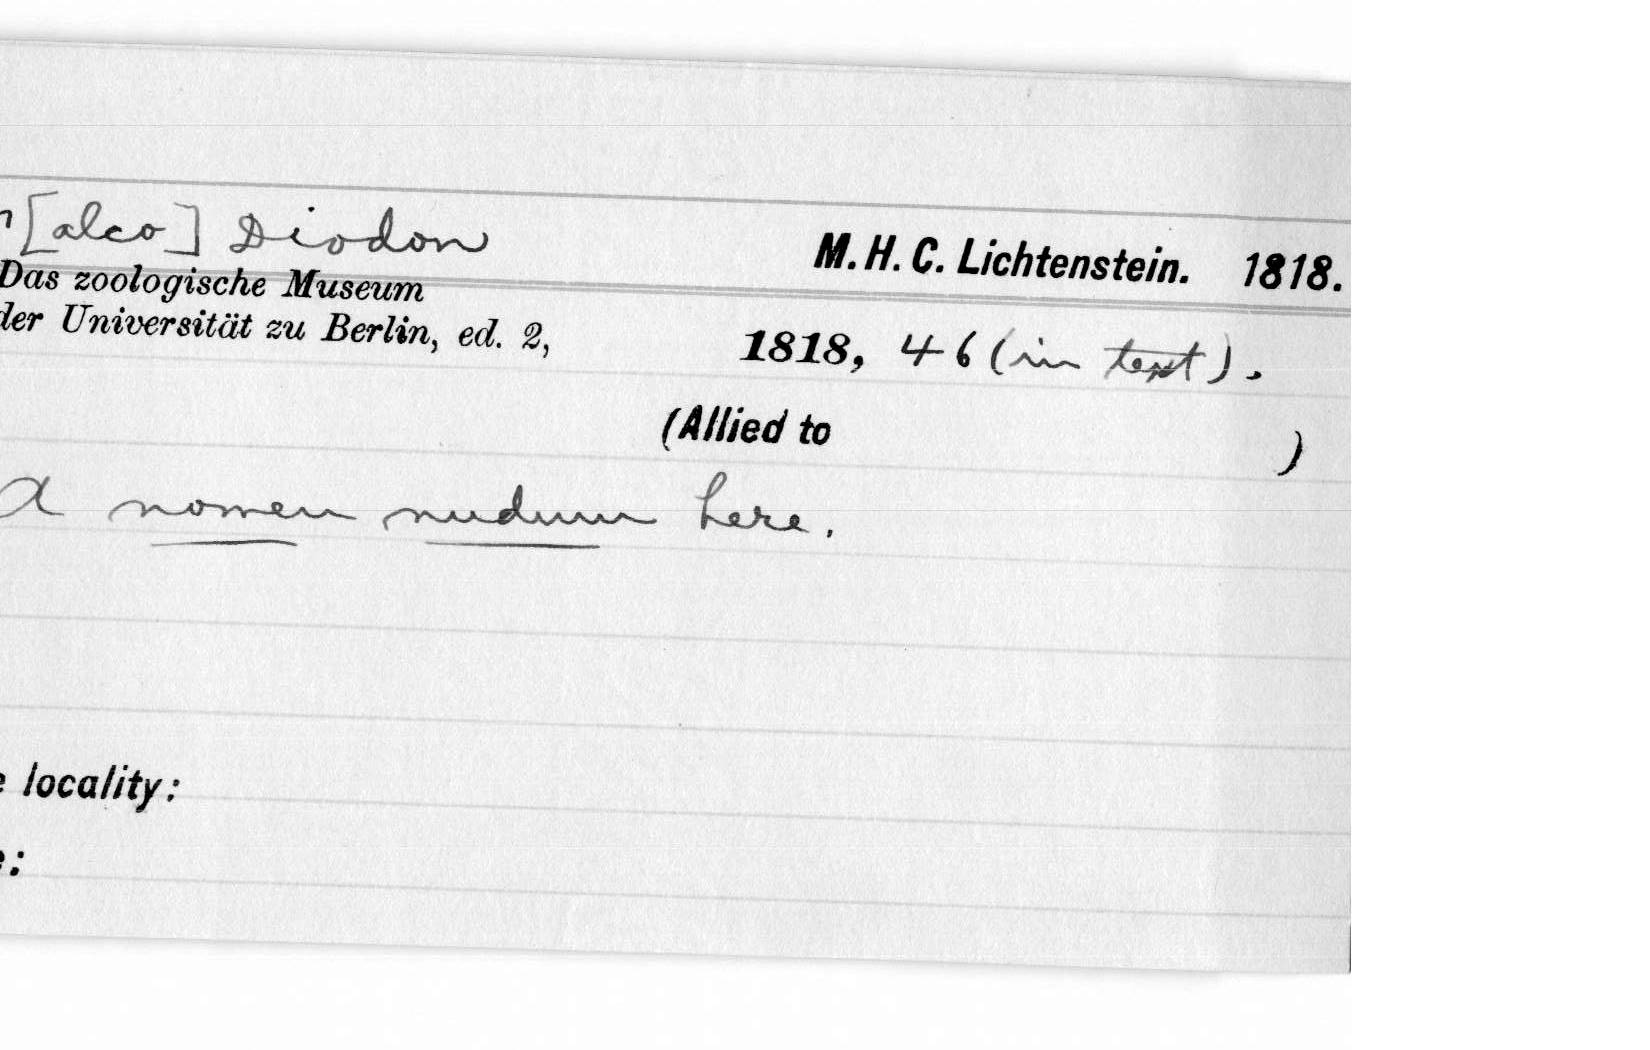 [alco] Diodon M. H. C. Lichtenstein. 1818.
Das zoologische Museum
der Universität zu Berlin, ed. 2, 1818, 46 (in text).
(Allied to )
A nomen nudum here.
locality: